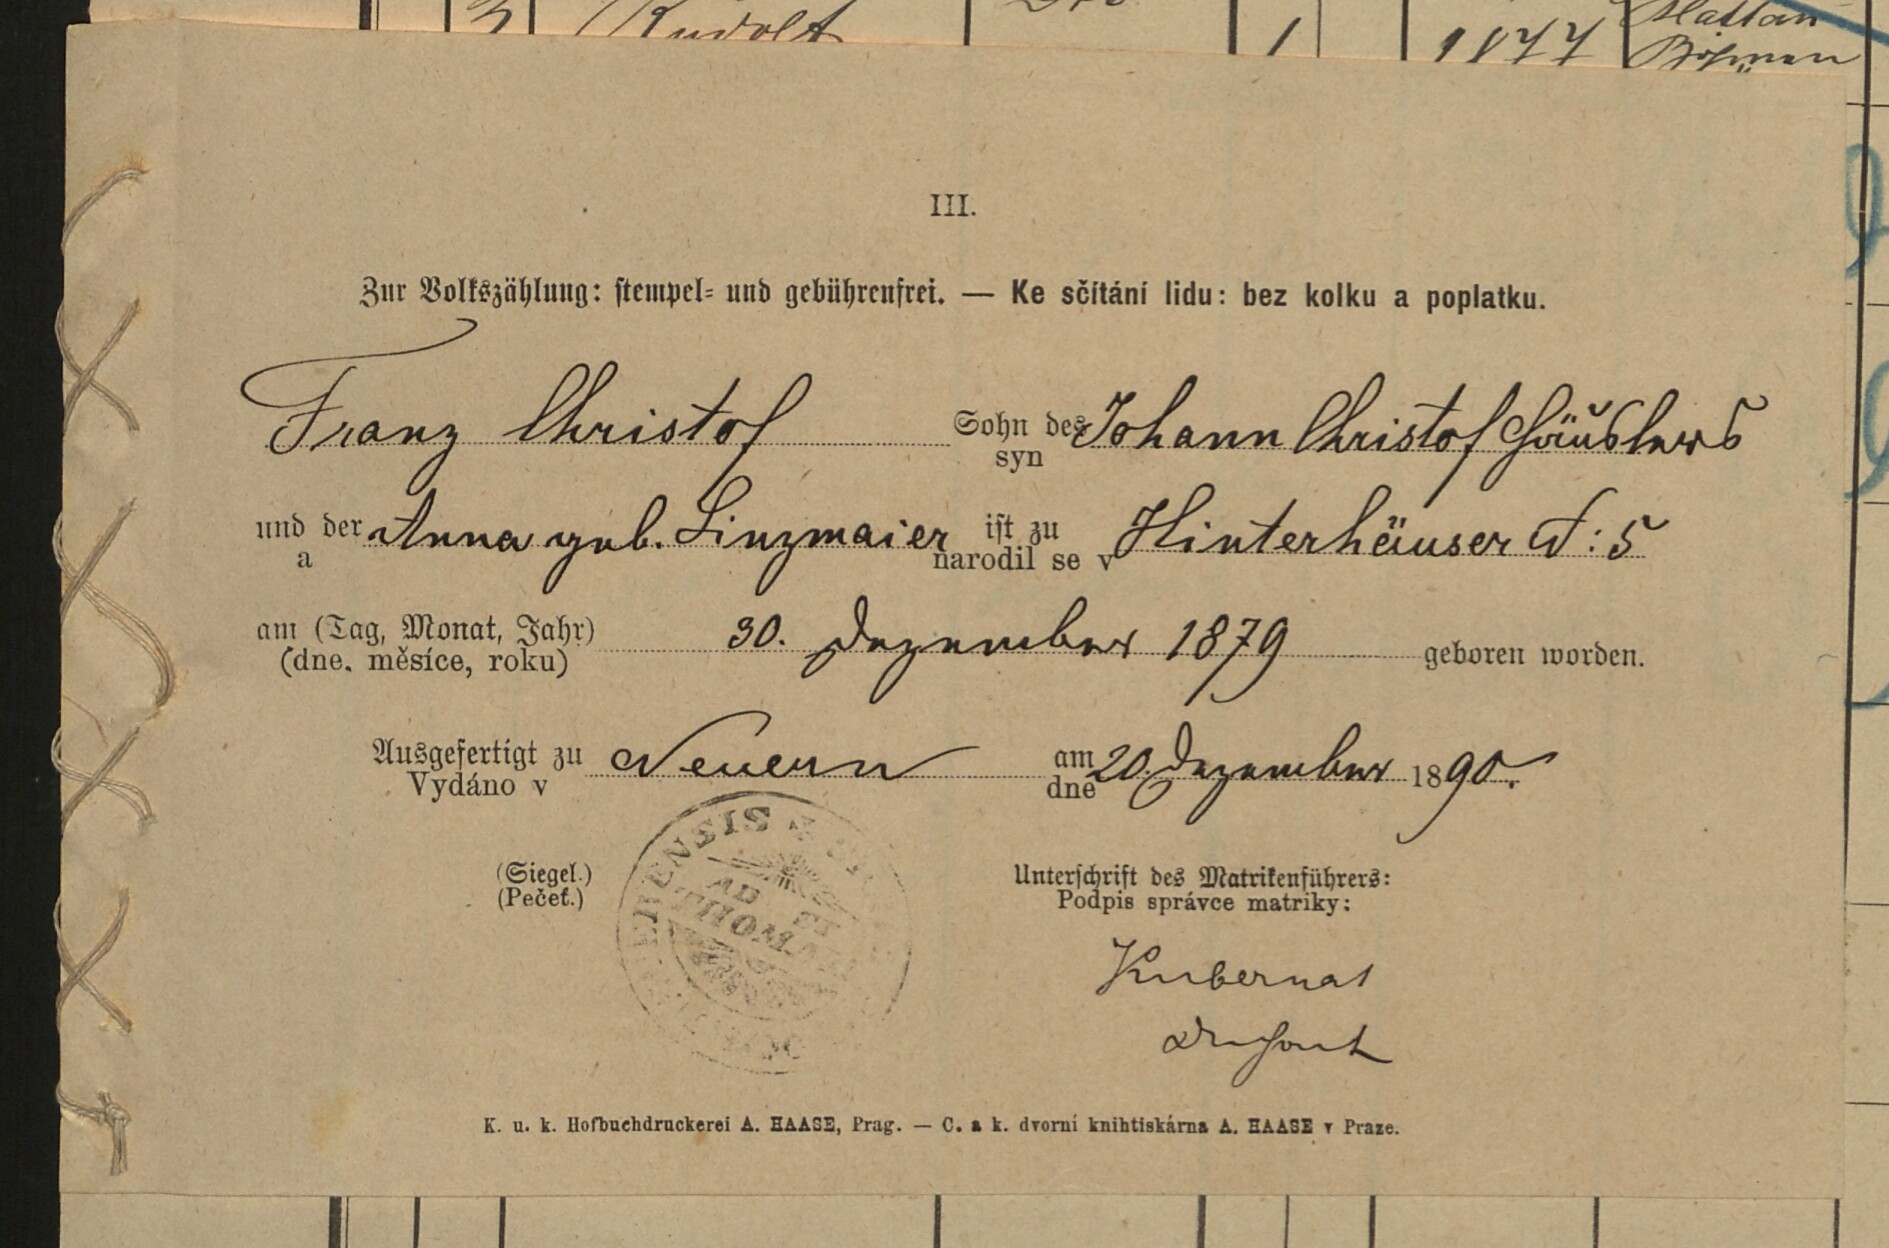 3 Rudolf 1 1877 Klattau
Böhmen
III.
Zur Volkszählung: stempel- und gebührenfrei. — Ke sčítání lidu: bez kolku a poplatku.
Franz Christof Sohn des Johann Christof Häuslers
syn
und der Anna geb. Linzmaier ist zu Hinterhäuser N: 5
a narodil se v
am (Tag, Monat, Jahr) 30. Dezember 1879 geboren worden.
(dne, měsíce, roku)
Ausgefertigt zu Neuern am 20. Dezember 1890.
Vydáno v dne
(Siegel.) Unterschrift des Matrikenführers:
(Pečeť.) Podpis správce matriky:
AD
THOMAM
Kubernat
Dechant
K. u. k. Hofbuchdruckerei A. HAASE, Prag. — C. a k. dvorní knihtiskárna A. HAASE v Praze.